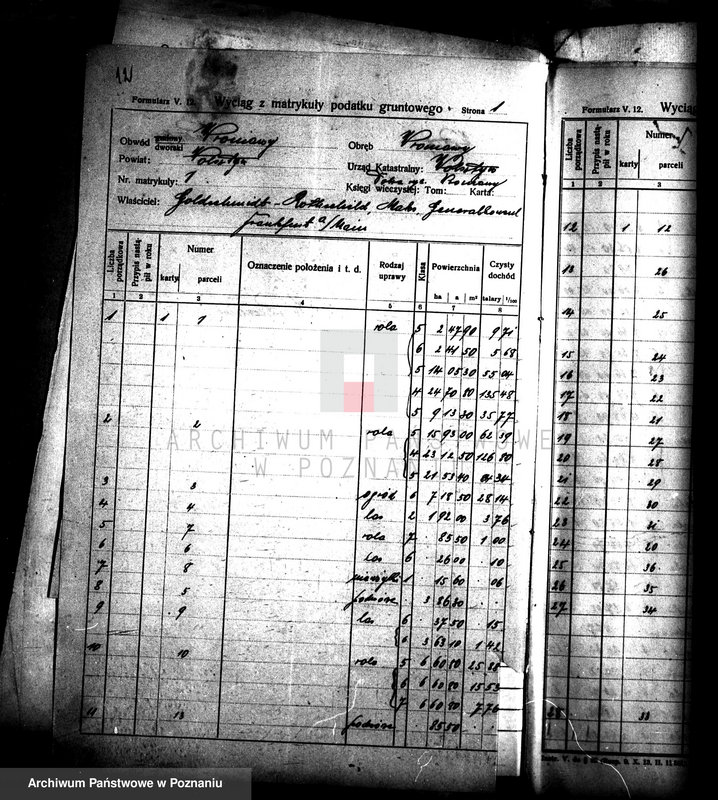 Formularz V. 12. Wyciąg z matrykuły podatku gruntowego Strona 1
Obwód gminny dworski
Obręb
Powiat: Wolsztyn
Urząd Katastralny: Wolsztyn
Nr. matrykuły: 1
Księgi wieczystej: Tom: Karta:
Właściciel: Goldschmidt-Rothschild, Generalkonsul
Frankfurt a/Main
Liczba porządkowa
Przypis nastąpił w roku
Numer
karty
parceli
Oznaczenie położenia i t. d.
Rodzaj uprawy
Klasa
Powierzchnia
ha a m²
Czysty dochód
talary 1/100
1 2 3 4 5 6 7 8
1 1 1 rola 5 2 47 90 9 71
6 2 41 50 5 68
5 14 05 30 55 04
4 24 70 80 135 48
5 9 13 30 35 77
2 2 rola 5 15 93 00 62 39
4 23 12 50 126 80
5 21 53 40
3 3 ogród 6 7 18 50 28 14
4 4 las 2 1 92 00 3 76
5 7 rola 7 85 50 1 00
6 6 las 6 26 00 10
7 8 1 15 60 06
8 5 podwórze 3 86 30
9 9 las 6 37 50 15
6 3 63 10 1 42
10 10 rola 5 6 60 80 25 88
6 6 60 80 15 53
7 6 60 80 7 76
11 13 podwórze 85 50
Formularz V. 12. Wyciąg
Liczba porządkowa
Przypis nastąpił w roku
Numer
karty
parceli
1 2 3
12 1 12
13 26
14 25
15 24
16 23
17 22
18 21
19 27
20 28
21 29
22 30
23 31
24 20
25 36
26 35
27 34
28 33
ARCHIWUM PAŃSTWOWE
W POZNANIU
Archiwum Państwowe w Poznaniu